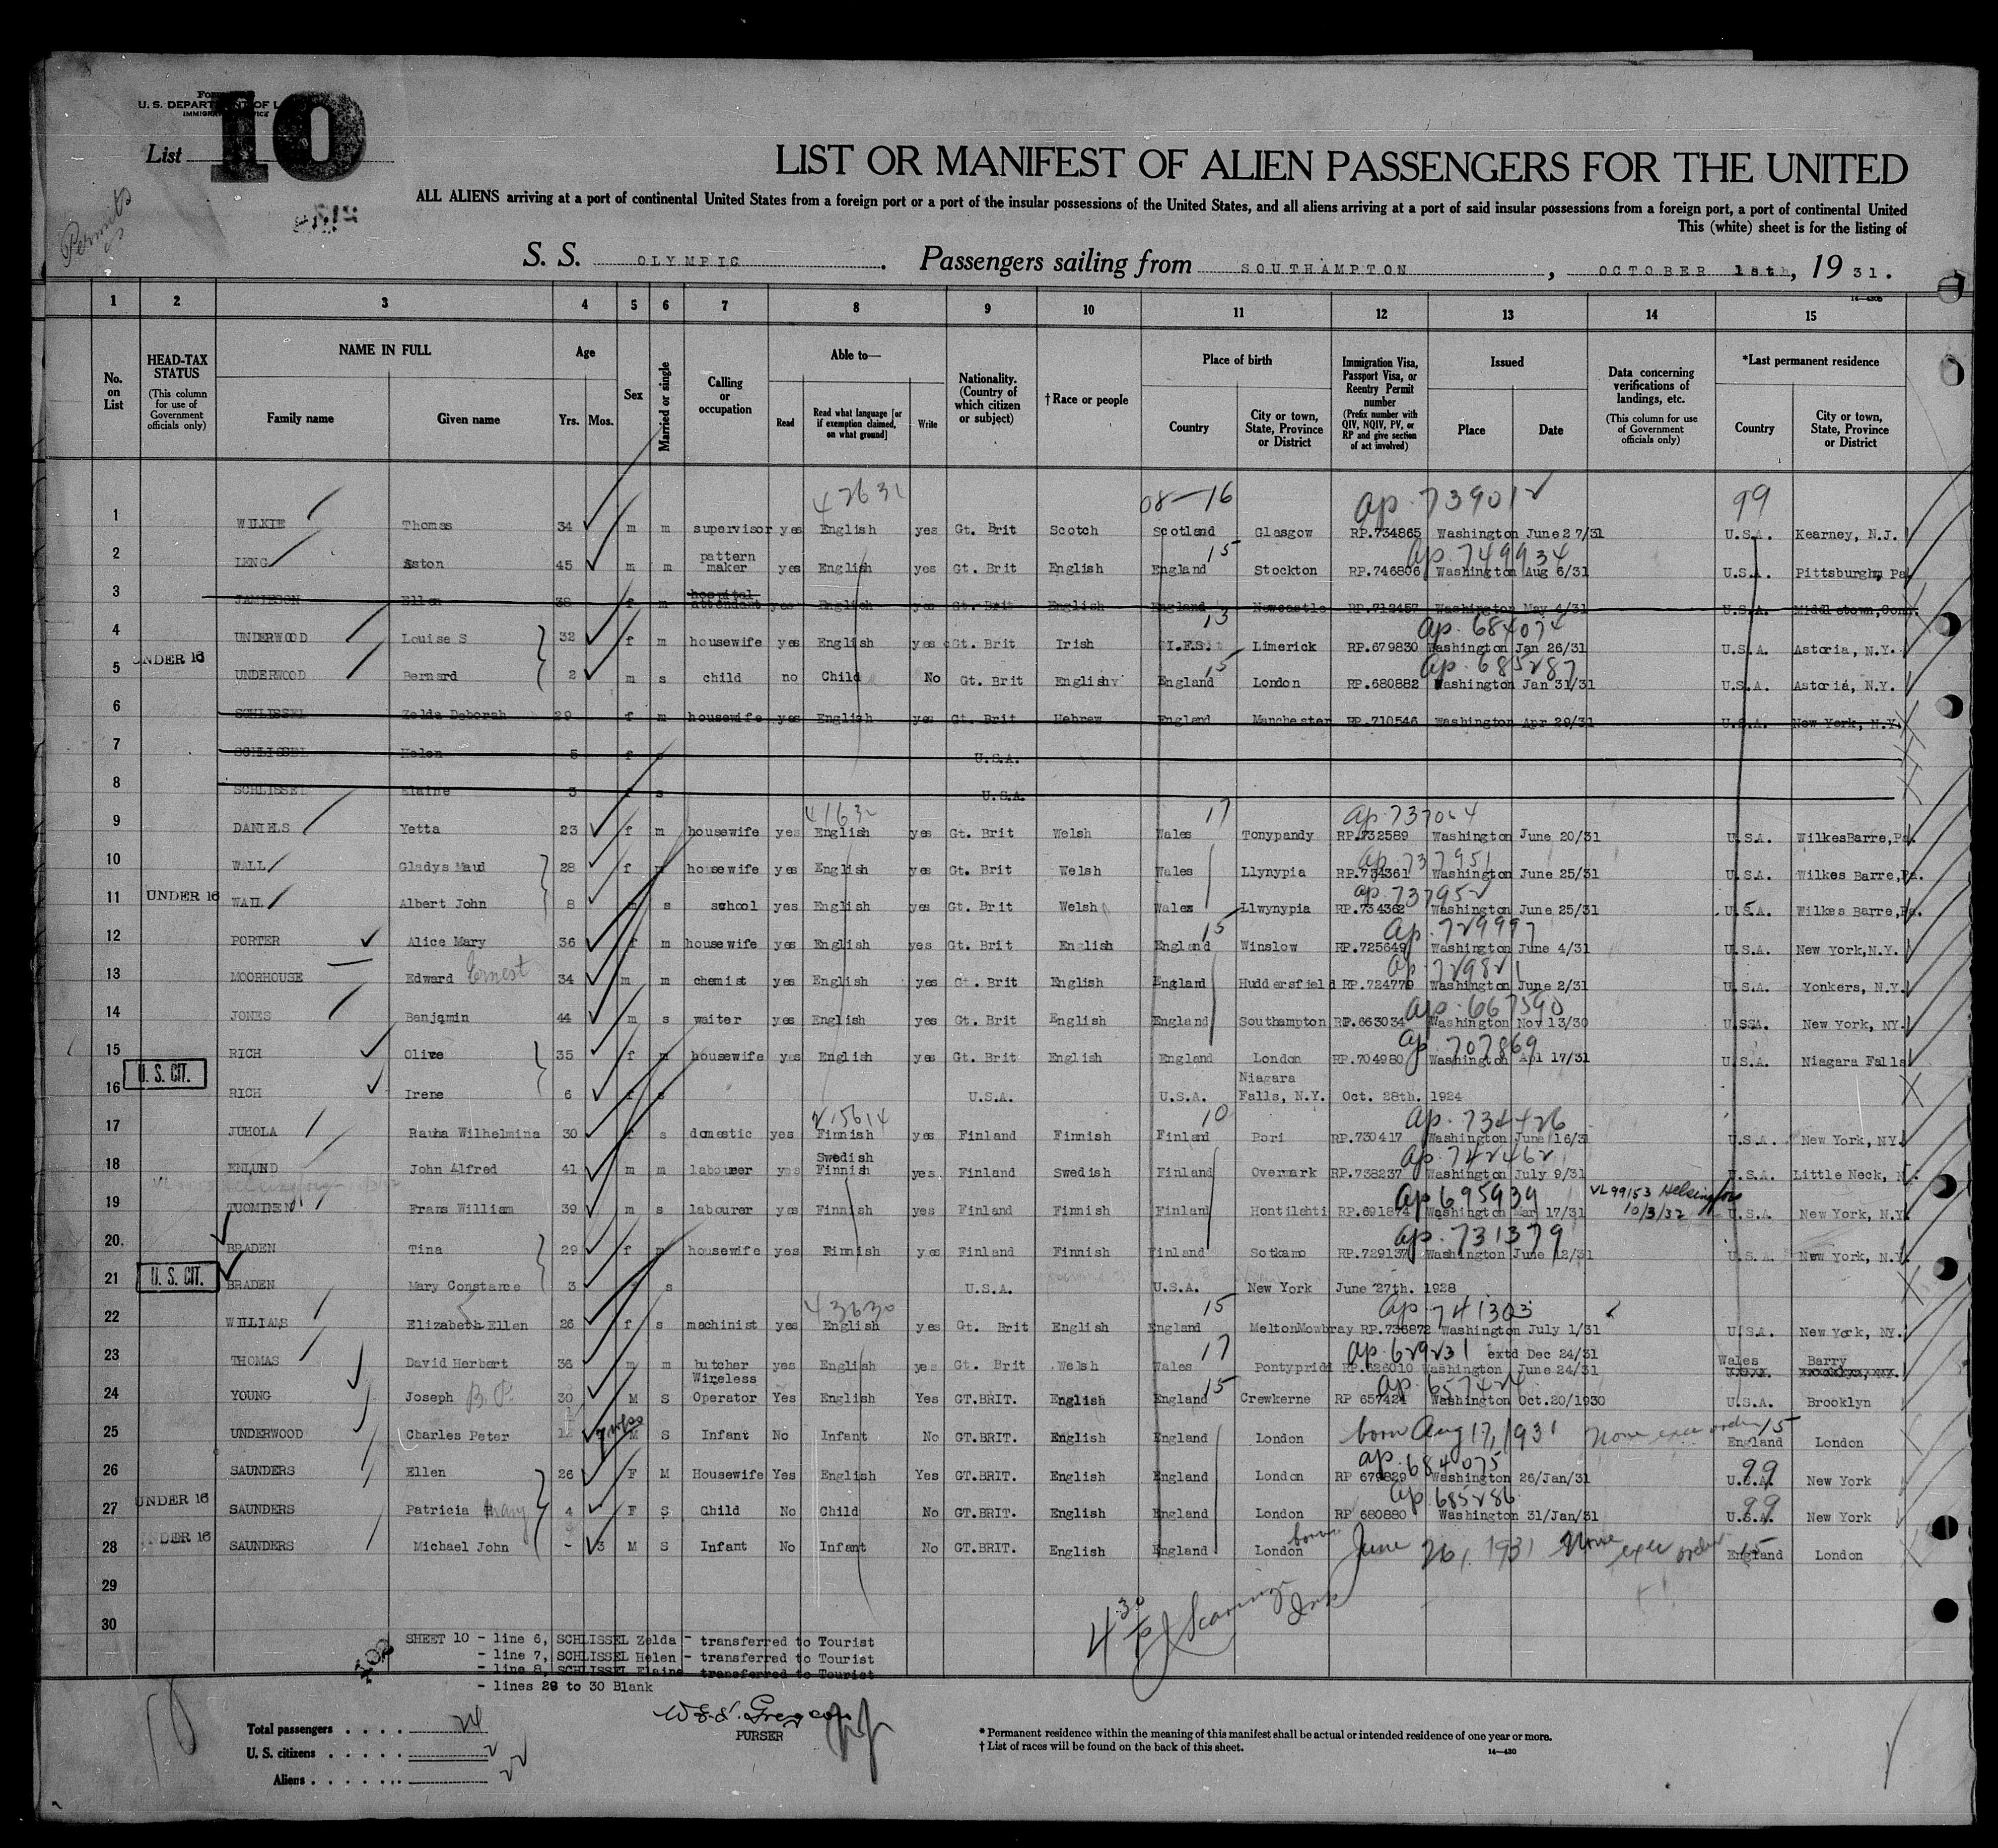 U. S. DEPARTMENT OF L
List 10
Permits
LIST OR MANIFEST OF ALIEN PASSENGERS FOR THE UNITED
ALL ALIENS arriving at a port of continental United States from a foreign port or a port of the insular possessions of the United States, and all aliens arriving at a port of said insular possessions from a foreign port, a port of continental United
This (white) sheet is for the listing of
S. S. OLYMPIC. Passengers sailing from SOUTHAMPTON, OCTOBER 1sth, 19 31.
14—430b
1 2 3 4 5 6 7 8 9 10 11 12 13 14 15
No. on List
HEAD-TAX STATUS (This column for use of Government officials only)
NAME IN FULL
Family name Given name
Age
Yrs. Mos.
Sex
Married or single
Calling or occupation
Able to—
Read Read what language [or if exemption claimed, on what ground] Write
Nationality. (Country of which citizen or subject)
† Race or people
Place of birth
Country City or town, State, Province or District
Immigration Visa, Passport Visa, or Reentry Permit number (Prefix number with QIV, NQIV, PV, or RP and give section of act involved)
Issued
Place Date
Data concerning verifications of landings, etc. (This column for use of Government officials only)
*Last permanent residence
Country City or town, State, Province or District
42631 08—16 ap. 739012 99
1 WILKIE Thomas 34 m m supervisor yes English yes Gt. Brit Scotch Scotland Glasgow RP.734865 Washington June 27/31 U.S.A. Kearney, N.J.
15 ap. 749934
2 LENG Aston 45 m m pattern maker yes English yes Gt. Brit English England Stockton RP.746806 Washington Aug 6/31 U.S.A. Pittsburgh, Pa.
3 JAMIESON Ellen 38 f m hospital attendant yes English yes Gt. Brit English England Newcastle RP.712457 Washington May 4/31 U.S.A. Middletown, Conn.
13 ap. 684074
4 UNDERWOOD Louise S 32 f m housewife yes English yes Gt. Brit Irish I.F.S. Limerick RP.679830 Washington Jan 26/31 U.S.A. Astoria, N.Y.
UNDER 16 15 ap. 685287
5 UNDERWOOD Bernard 2 m s child no Child No Gt. Brit English England London RP.680882 Washington Jan 31/31 U.S.A. Astoria, N.Y.
6 SCHLISSEL Zelda Deborah 29 f m housewife yes English yes Gt. Brit Hebrew England Manchester RP.710546 Washington Apr 29/31 U.S.A. New York, N.Y.
7 SCHLISSEL Helen 5 f s U.S.A.
8 SCHLISSEL Elaine 3 f s U.S.A.
41632 17 ap. 737064
9 DANIELS Yetta 23 f m housewife yes English yes Gt. Brit Welsh Wales Tonypandy RP.732589 Washington June 20/31 U.S.A. WilkesBarre, Pa.
ap. 737951
10 WALL Gladys Maud 28 f housewife yes English yes Gt. Brit Welsh Wales Llynypia RP.734361 Washington June 25/31 U.S.A. Wilkes Barre, Pa.
ap. 737952
11 UNDER 16 WALL Albert John 8 m s school yes English yes Gt. Brit Welsh Wales Llwynypia RP.734362 Washington June 25/31 U.S.A. Wilkes Barre, Pa.
15 ap. 729997
12 PORTER Alice Mary 36 f m housewife yes English yes Gt. Brit English England Winslow RP.725649 Washington June 4/31 U.S.A. New York, N.Y.
ap. 729821
13 MOORHOUSE Edward Ernest 34 m m chemist yes English yes Gt. Brit English England Huddersfield RP.724779 Washington June 2/31 U.S.A. Yonkers, N.Y.
ap. 667590
14 JONES Benjamin 44 m s waiter yes English yes Gt. Brit English England Southampton RP.663034 Washington Nov 13/30 U.SSA. New York, NY.
ap 707869
15 RICH Olive 35 f m housewife yes English yes Gt. Brit English England London RP.704980 Washington Apl 17/31 U.S.A. Niagara Falls
U. S. CIT.
16 RICH Irene 6 f s U.S.A. U.S.A. Niagara Falls, N.Y. Oct. 28th. 1924
215614 10 ap. 734426
17 JUHOLA Rauha Wilhelmina 30 f s domestic yes Finnish yes Finland Finnish Finland Pori RP.730417 Washington June 16/31 U.S.A. New York, NY.
ap. 742462
18 ENLUND John Alfred 41 m m labourer yes Swedish Finnish yes. Finland Swedish Finland Overmark RP.738237 Washington July 9/31 U.S.A. Little Neck, N.
ap 695939 VL99153 Helsingfors 10/3/32
19 TUOMINEN Frans William 39 m s labourer yes Finnish yes Finland Finnish Finland Hontilahti RP.691874 Washington Mar 17/31 U.S.A New York, N.Y.
ap. 731379
20. BRADEN Tina 29 f m housewife yes Finnish yes Finland Finnish Finland Sotkamo RP.729137 Washington June 12/31 U.S.A. New York, N.Y.
21 U. S. CIT. BRADEN Mary Constance 3 f s U.S.A. U.S.A. New York June 27th. 1928
43630 15 ap. 741303
22 WILLIAMS Elizabeth Ellen 26 f s machinist yes English yes Gt. Brit English England MeltonMowbray RP.736872 Washington July 1/31 U.S.A. New York, NY.
17 ap. 629231 extd Dec 24/31
23 THOMAS David Herbert 36 m m butcher yes English yes Gt. Brit Welsh Wales Pontypridd RP.626010 Washington June 24/31 Wales Barry
15 ap. 657424
24 YOUNG Joseph B. P. 30 M S Wireless Operator Yes English Yes GT.BRIT. English England Crewkerne RP 657424 Washington Oct.20/1930 U.S.A. Brooklyn
25 UNDERWOOD Charles Peter M S Infant No Infant No GT.BRIT. English England London born Aug 17, 1931 None exec order 15 England London
ap. 684075 99
26 SAUNDERS Ellen 26 F M Housewife Yes English Yes GT.BRIT. English England London RP 679829 Washington 26/Jan/31 U.S.A. New York
UNDER 16 ap 685286 99
27 SAUNDERS Patricia Mary 4 F S Child No Child No GT.BRIT. English England London RP 680880 Washington 31/Jan/31 U.S.A. New York
UNDER 16
28 SAUNDERS Michael John - 3 M S Infant No Infant No GT.BRIT. English England London born June 26, 1931 None exec order 15 England London
29
30
4 30
SHEET 10 - line 6, SCHLISSEL Zelda - transferred to Tourist
- line 7, SCHLISSEL Helen - transferred to Tourist
- line 8, SCHLISSEL Elaine transferred to Tourist
- lines 29 to 30 Blank
Total passengers . . . . 24
U. S. citizens . . . . . 2
Aliens . . . . . . . 22
PURSER
* Permanent residence within the meaning of this manifest shall be actual or intended residence of one year or more.
† List of races will be found on the back of this sheet.
14—430